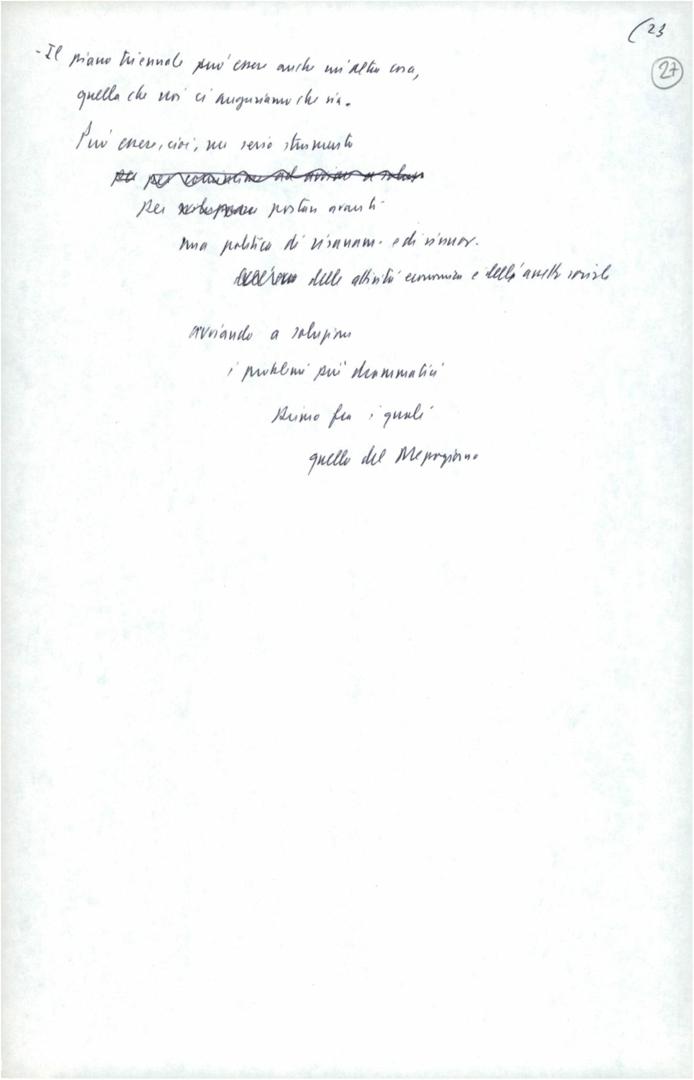 (23
27
- Il piano triennale può essere anche un'altra cosa,
quella che noi ci auguriamo che sia.
Può essere, cioè, un serio strumento
per per cominciare ad avviare a soluz
per portare avanti
una politica di risanam. e di rinnov.
delle attività economica e dell' assetto sociale
avviando a soluzione
i problemi più drammatici
primo fra i quali
quello del Mezzogiorno